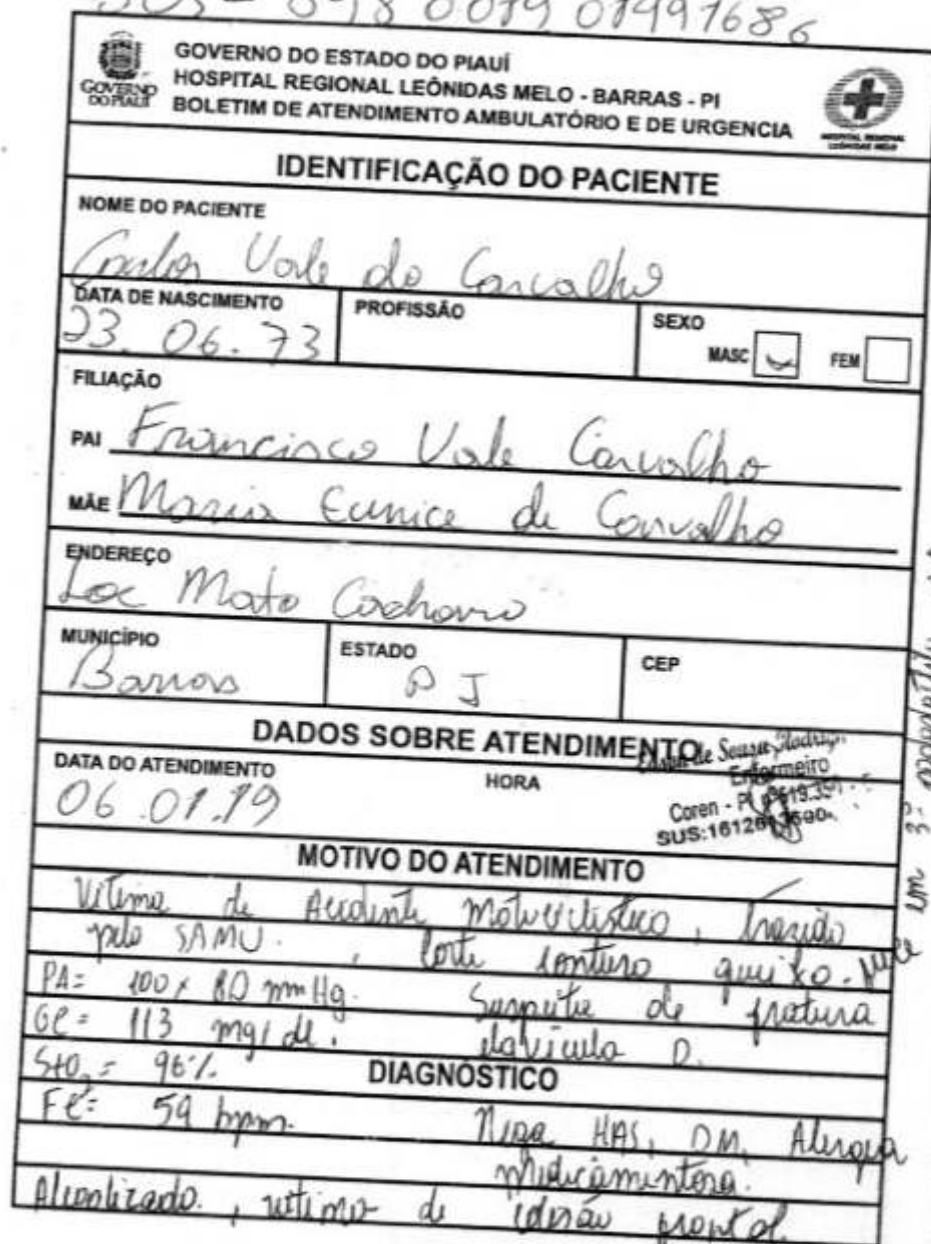 SUS - 898 0019 01991686
GOVERNO DO ESTADO DO PIAUÍ
HOSPITAL REGIONAL LEÔNIDAS MELO - BARRAS - PI
BOLETIM DE ATENDIMENTO AMBULATÓRIO E DE URGENCIA
GOVERNO DO PIAUÍ
HOSPITAL REGIONAL LEÔNIDAS MELO
IDENTIFICAÇÃO DO PACIENTE
NOME DO PACIENTE
Carlos Vale de Carvalho
DATA DE NASCIMENTO
23.06.73
PROFISSÃO
SEXO
MASC
FEM
FILIAÇÃO
PAI Francisco Vale Carvalho
MÃE Maria Eunice de Carvalho
ENDEREÇO
Loc Mato
MUNICÍPIO
Barras
ESTADO
PI
CEP
DADOS SOBRE ATENDIMENTO
DATA DO ATENDIMENTO
06.01.19
HORA
de Sousa
Enfermeiro
Coren - PI
MOTIVO DO ATENDIMENTO
Vitima de Acidente motociclistico, trazido
pelo SAMU. , corte contuso queixo. face
em 3º
PA= 100 x 80 mmHg. Suspeita de fratura
GC= 113 mg/dl. clavicula D.
StO2= 96%.
DIAGNÓSTICO
FC= 59 bpm. Nega HAS, DM, Alergia
medicamentosa.
Alcoolizado. , vitima de colisão frontal.